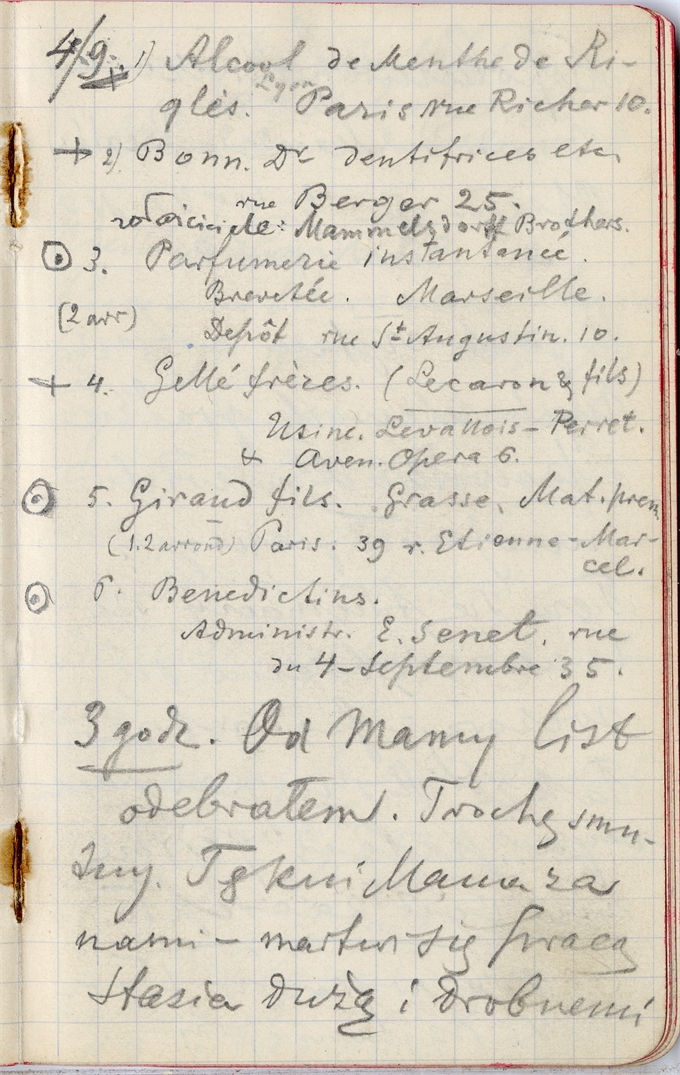 4/9. 1) Alcool de Menthe de Ri-
Lyon
qlès. Paris rue Richer 10.
+ 2) Bonn. Dr dentifrices etc.
rue Berger 25.
właściciele: Mammelsdorff Brothers.
3. Parfumerie instantanée.
Brevetée. Marseille.
(2 arr) Depôt rue St Augustin. 10.
+ 4. Gellé frères. (Lecaron & fils)
Usine. Levallois-Perret.
+ Aven. Opera 6.
5. Giraud fils. Grasse. Mat. prem.
(1.2 arrond) Paris. 39 r. Etienne-Mar-
cel.
6. Benedictins.
Administr. E. Senet, rue
du 4-Septembre 35.
3 godz. Od Mamy list
odebrałem. Trochę smu-
tny. Tęskni Mama za
nami - martwi się pracą
Stasia dużą i drobnemi